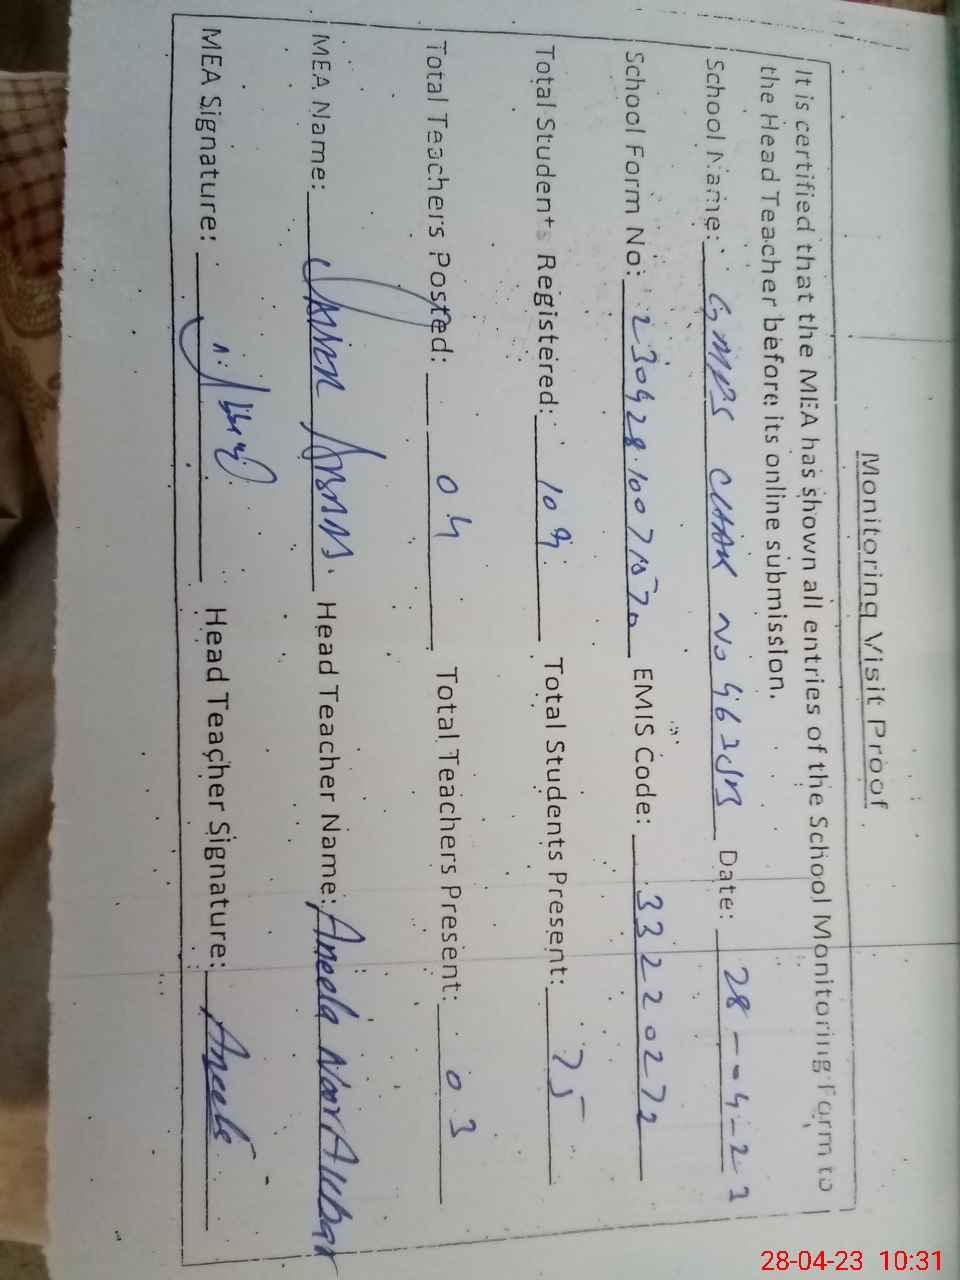 Monitoring Visit Proof
It is certified that the MEA has shown all entries of the School Monitoring Form to
the Head Teacher before its online submission.
School Name: GMPS CHAK No 463JB Date: 28-04-23
School Form No: EMIS Code: 33220272
Total Students Registered: 109 Total Students Present: 75
Total Teachers Posted: 04 Total Teachers Present: 03
MEA Name: Head Teacher Name: Aneela Noor Akbar
MEA Signature: Head Teacher Signature: Aneela
28-04-23 10:31